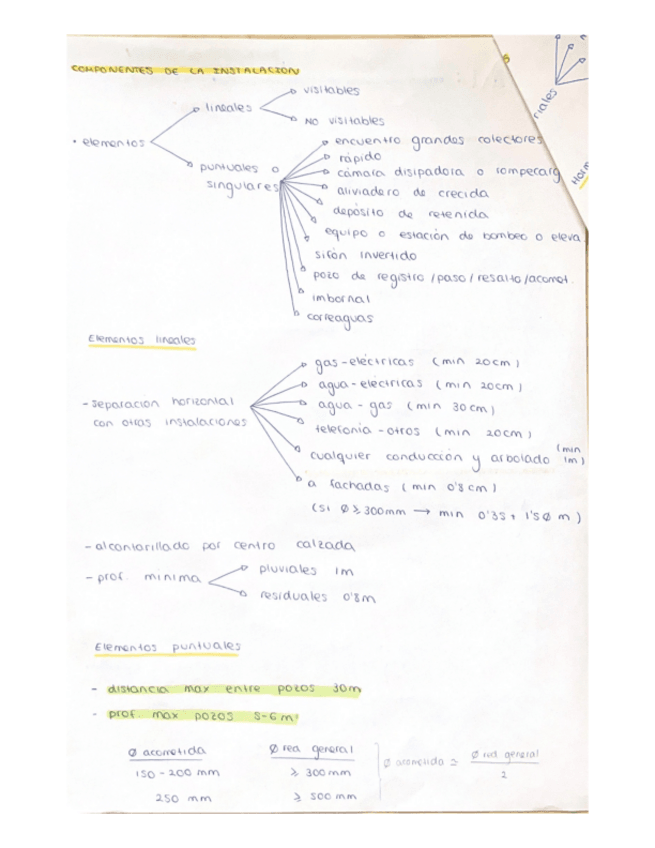 COMPONENTES DE LA INSTALACIÓN
• elementos
lineales
visitables
NO visitables
puntuales o
singulares
encuentro grandes colectores
rápido
cámara disipadora o rompecarg
aliviadero de crecida
depósito de retenida
equipo o estación de bombeo o eleva.
sifón invertido
pozo de registro /paso/ resalto /acomet.
imbornal
correaguas
riales
Horm
Elementos lineales
- separación horizontal
con otras instalaciones
gas-eléctricas (min 20cm)
agua-eléctricas (min 20cm)
agua - gas (min 30cm)
telefonía - otros (min 20cm)
cualquier conducción y arbolado (min 1m)
a fachadas (min 0'8cm)
(si Ø ≥ 300mm → min 0'35 + 1'5Ø m)
- alcantarillado por centro calzada
- prof. minima
pluviales 1m
residuales 0'8m
Elementos puntuales
- distancia max entre pozos 30m
- prof. max pozos 5-6m
Ø acometida Ø red general
150-200 mm ≥ 300mm
250 mm ≥ 500mm
Ø acometida ≃ Ø red general
2